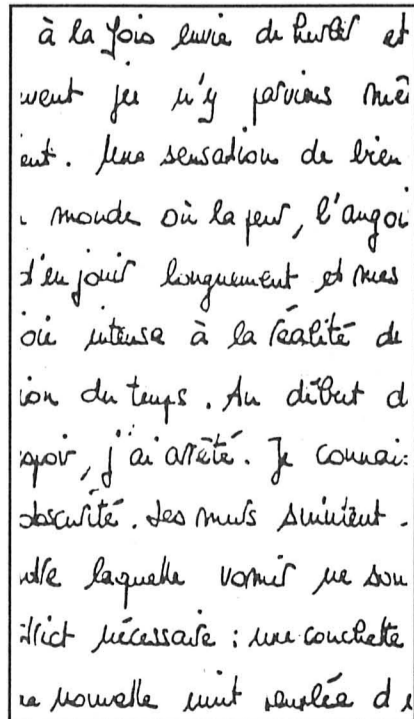 à la fois envie de hurler et
vent je n'y parviens mê
ent. Une sensation de bien
monde où la peur, l'angoi
d'en jouir longuement et mes
oie intense à la réalité de
ion du temps. Au début d
spoir, j'ai arrêté. Je connai
obscurité. Les murs suintent.
laquelle vomir ne son
trict nécessaire : une couchette
nouvelle nuit peuplée d